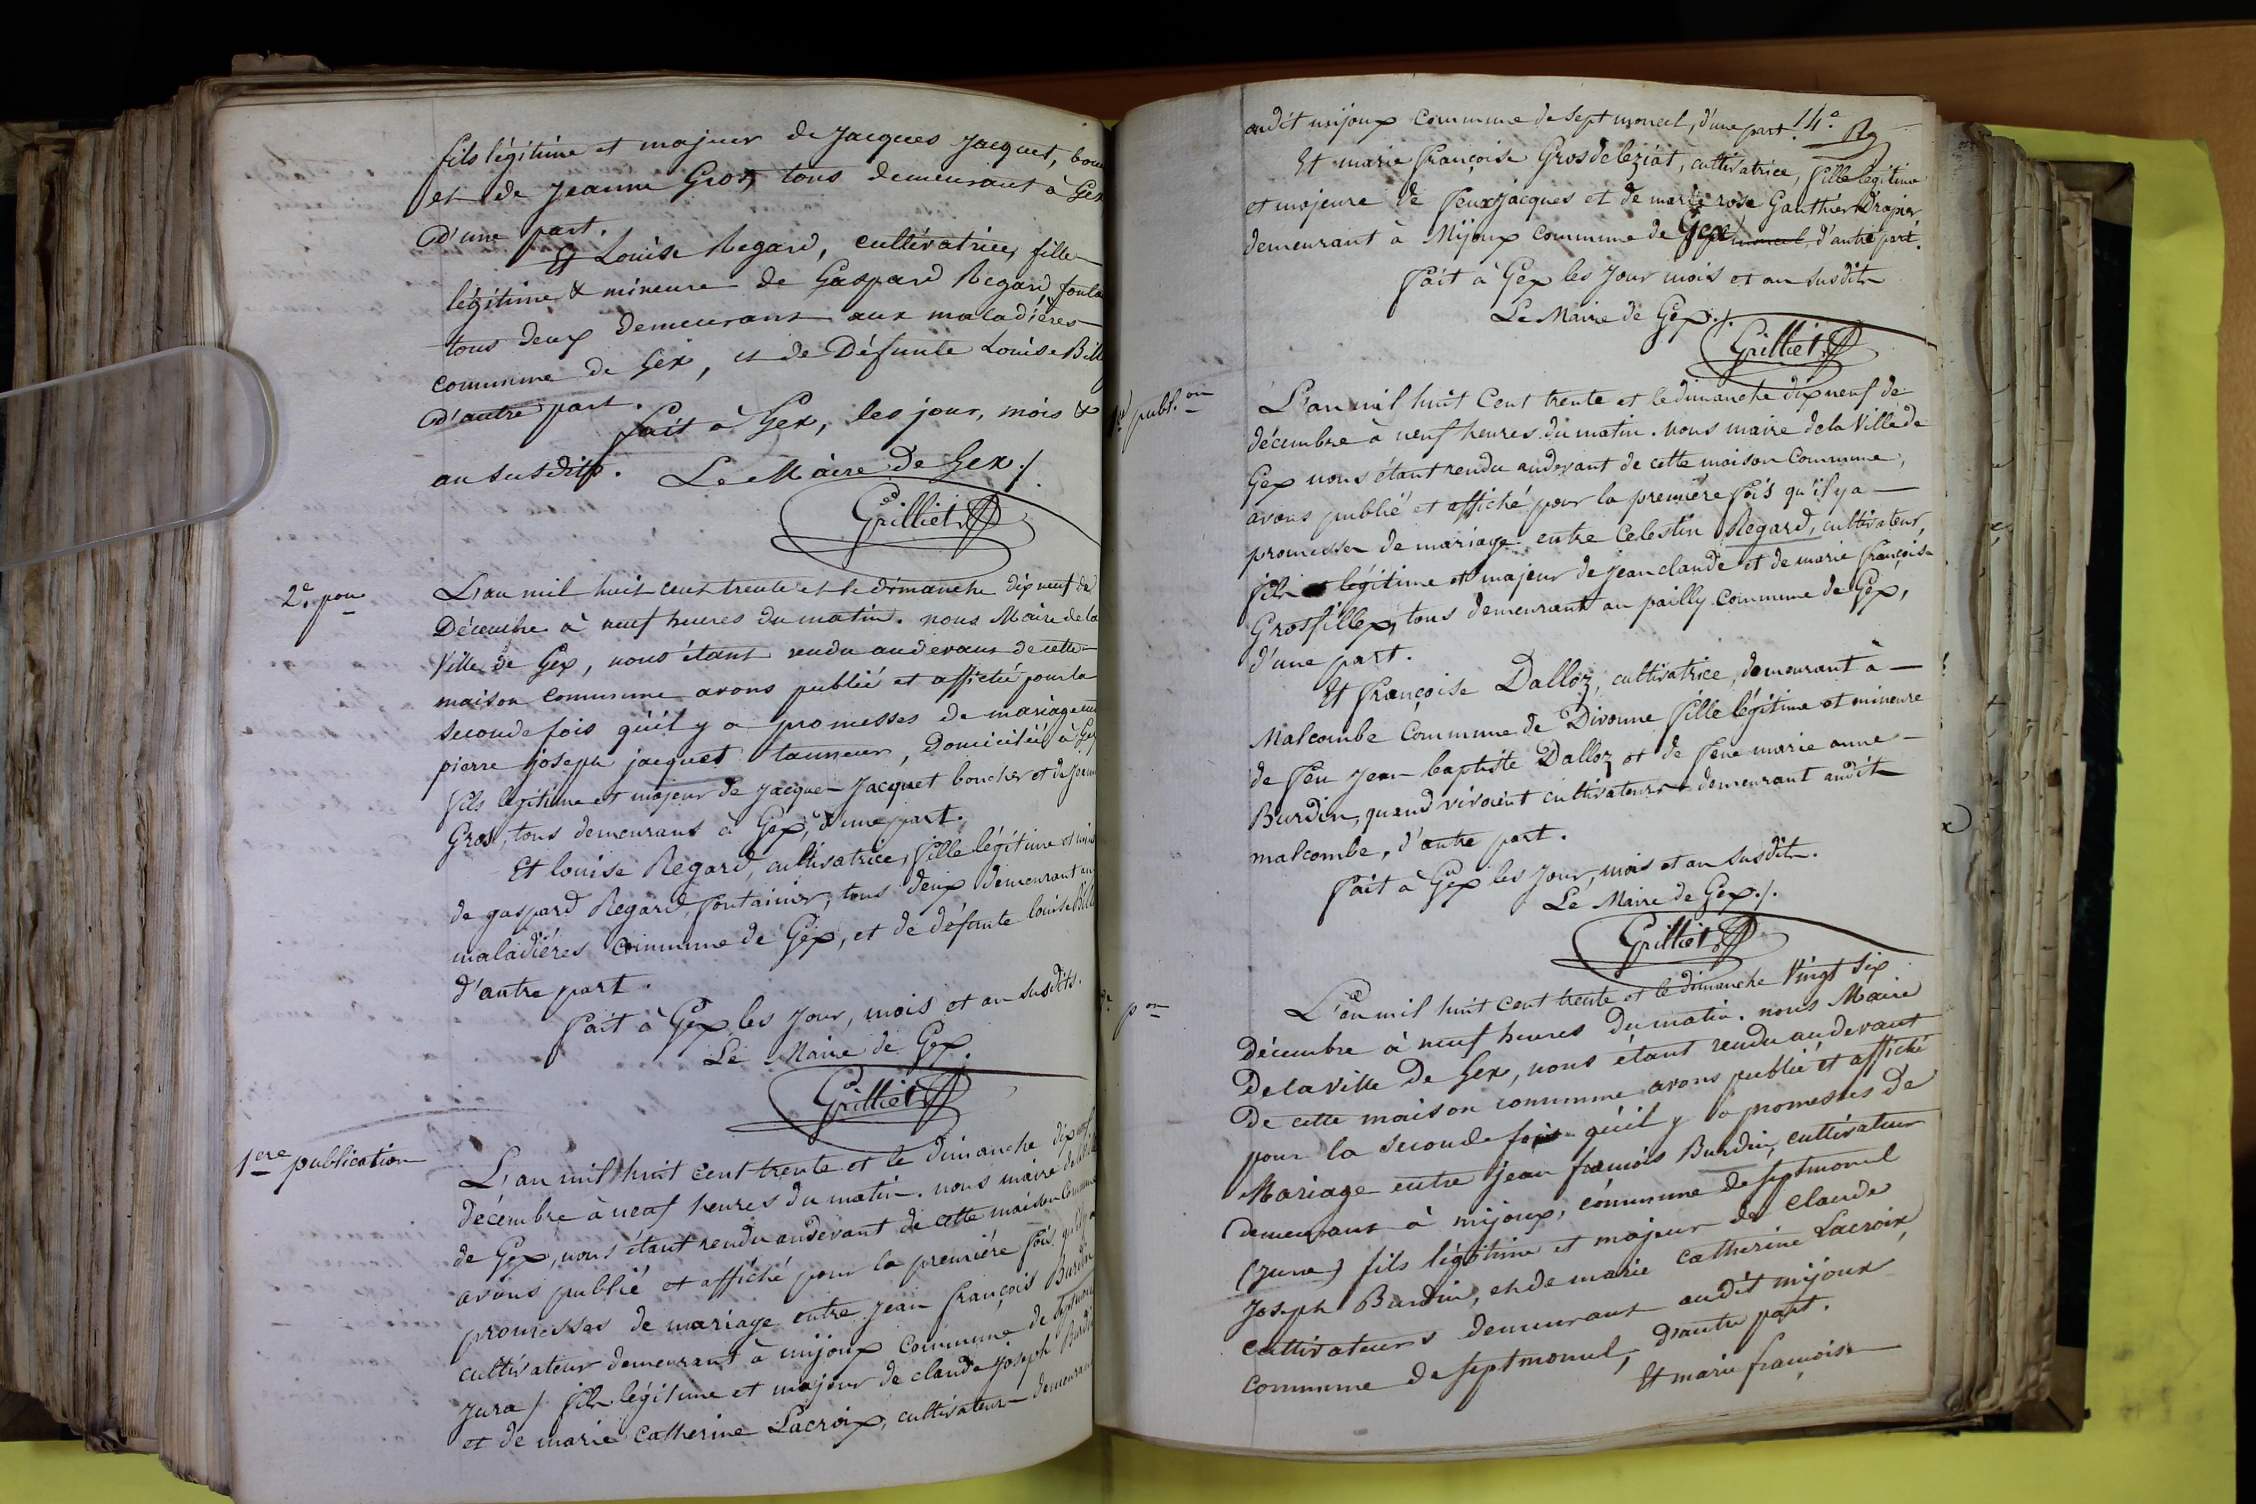 fils légitime et majeur de Jacques Jacquet,
et de Jeanne Gros, tous demeurant à Gex
d'une part.
Et Louise Regard, cultivatrice, fille
légitime & mineure de Gaspard Regard,
tous deux demeurant aux maladières
commune de Gex, et de Défunte Louise
d'autre part.
fait à Gex, les jour, mois &
an susdits. Le Maire de Gex ./.
Grilliet
2e pon
L'an mil huit cent trente et le dimanche dix neuf de
Décembre à neuf heures du matin. nous Maire de la
Ville de Gex, nous étant rendu au devant de cette
maison commune avons publié et affiché pour la
seconde fois qu'il y a promesses de mariage
pierre joseph jacquet tanneur, Domicilié à Gex
fils légitime et majeur de Jacques Jacquet boucher et de Jeanne
Gros, tous demeurant à Gex, d'une part.
Et louise Regard, cultivatrice, fille légitime et
de gaspard Regard, fontainier, tous deux demeurant aux
maladières commune de Gex, et de défunte louise
d'autre part.
fait à Gex les jour, mois et an susdits.
Le Maire de Gex
Grilliet
1ere publication
L'an mil huit cent trente et le dimanche dix neuf
décembre à neuf heures du matin. nous maire de la ville
de Gex, nous étant rendu au devant de cette maison commune
avons publié et affiché pour la première fois qu'il y a
promesses de mariage entre jean françois Burdin
cultivateur demeurant à mijoux commune de septmoncel
jura) fils légitime et majeur de claude joseph Burdin
et de marie Catherine Lacroix, cultivateurs demeurant
audit mijoux commune de septmoncel, d'une part. 14e
Rg
Et marie françoise Grosdeleziat, cultivatrice, fille légitime
et majeure de feu jacques et de marie rose Gauthier Drapier
demeurant à Mijoux commune de Gex d'autre part.
fait à Gex les jour mois et an susdits
Le Maire de Gex ./.
Grilliet
1re publ.on
L'an mil huit cent trente et le dimanche dix neuf de
décembre à neuf heures du matin. nous maire de la Ville de
Gex nous étant rendu au devant de cette maison commune,
avons publié et affiché pour la première fois qu'il y a
promesses de mariage entre Celestin Regard, cultivateur,
fils légitime et majeur de jean claude et de marie françoise
Grosfillex, tous demeurant au pailly commune de Gex,
d'une part.
Et françoise Dalloz, cultivatrice, demeurant à
Malcombe Commune de Divonne fille légitime et mineure
de feu jean baptiste Dalloz et de feue marie anne
Burdin, quand vivoient cultivateurs demeurant audit
malcombe, d'autre part.
fait à Gex les jour, mois et an susdits.
Le Maire de Gex ./.
Grilliet
pon
L'an mil huit cent trente et le dimanche Vingt six
Décembre à neuf heures du matin. nous Maire
De la ville de Gex, nous étant rendu au devant
De cette maison commune avons publié et affiché
pour la seconde fois qu'il y a promesses de
Mariage entre jean françois Burdin, cultivateur
demeurant à mijoux, commune de septmoncel
(jura) fils légitime et majeur de claude
Joseph Burdin, et de marie Catherine Lacroix,
cultivateurs demeurant audit mijoux
commune de septmoncel, d'autre part.
Et marie françoise